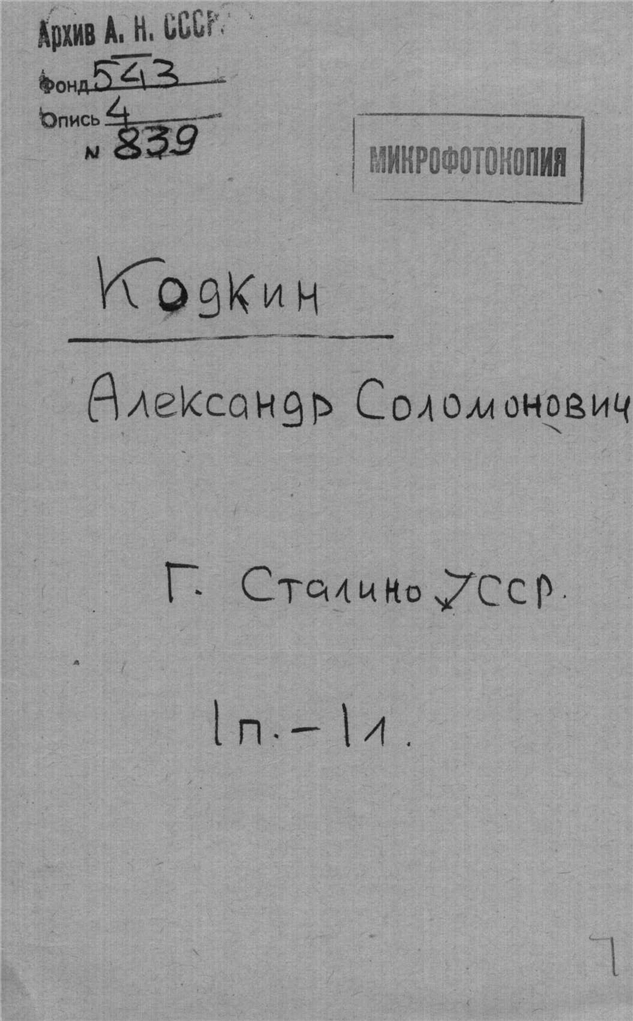 Архив А. Н. СССР.
Фонд 543
Опись 4
N 839
МИКРОФОТОКОПИЯ
Кодкин
Александр Соломонович
Г. Сталино УССР.
1п. – 1л.